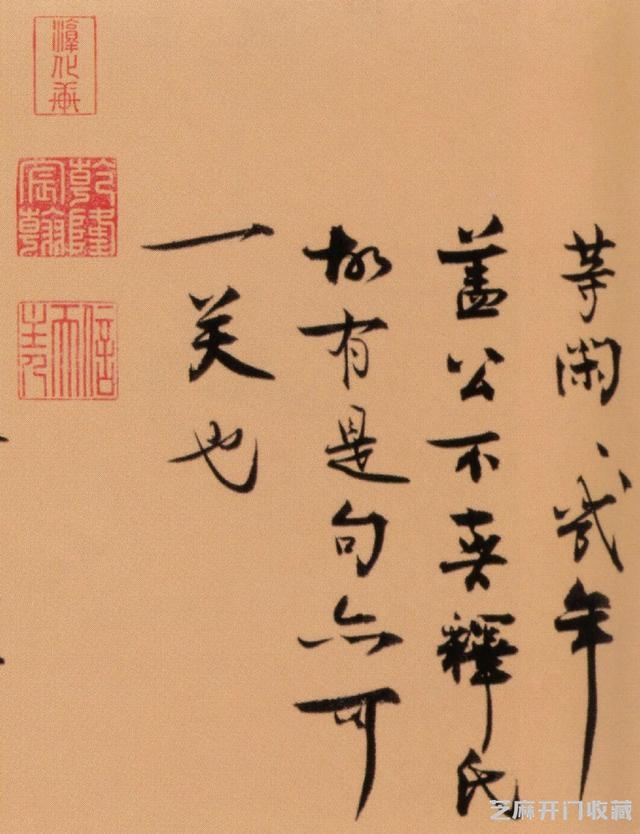 等閑年
蓋公不喜釋氏
故有是句亦可
一笑也
淳化軒
乾隆宸翰
信天主人
芝麻开门收藏